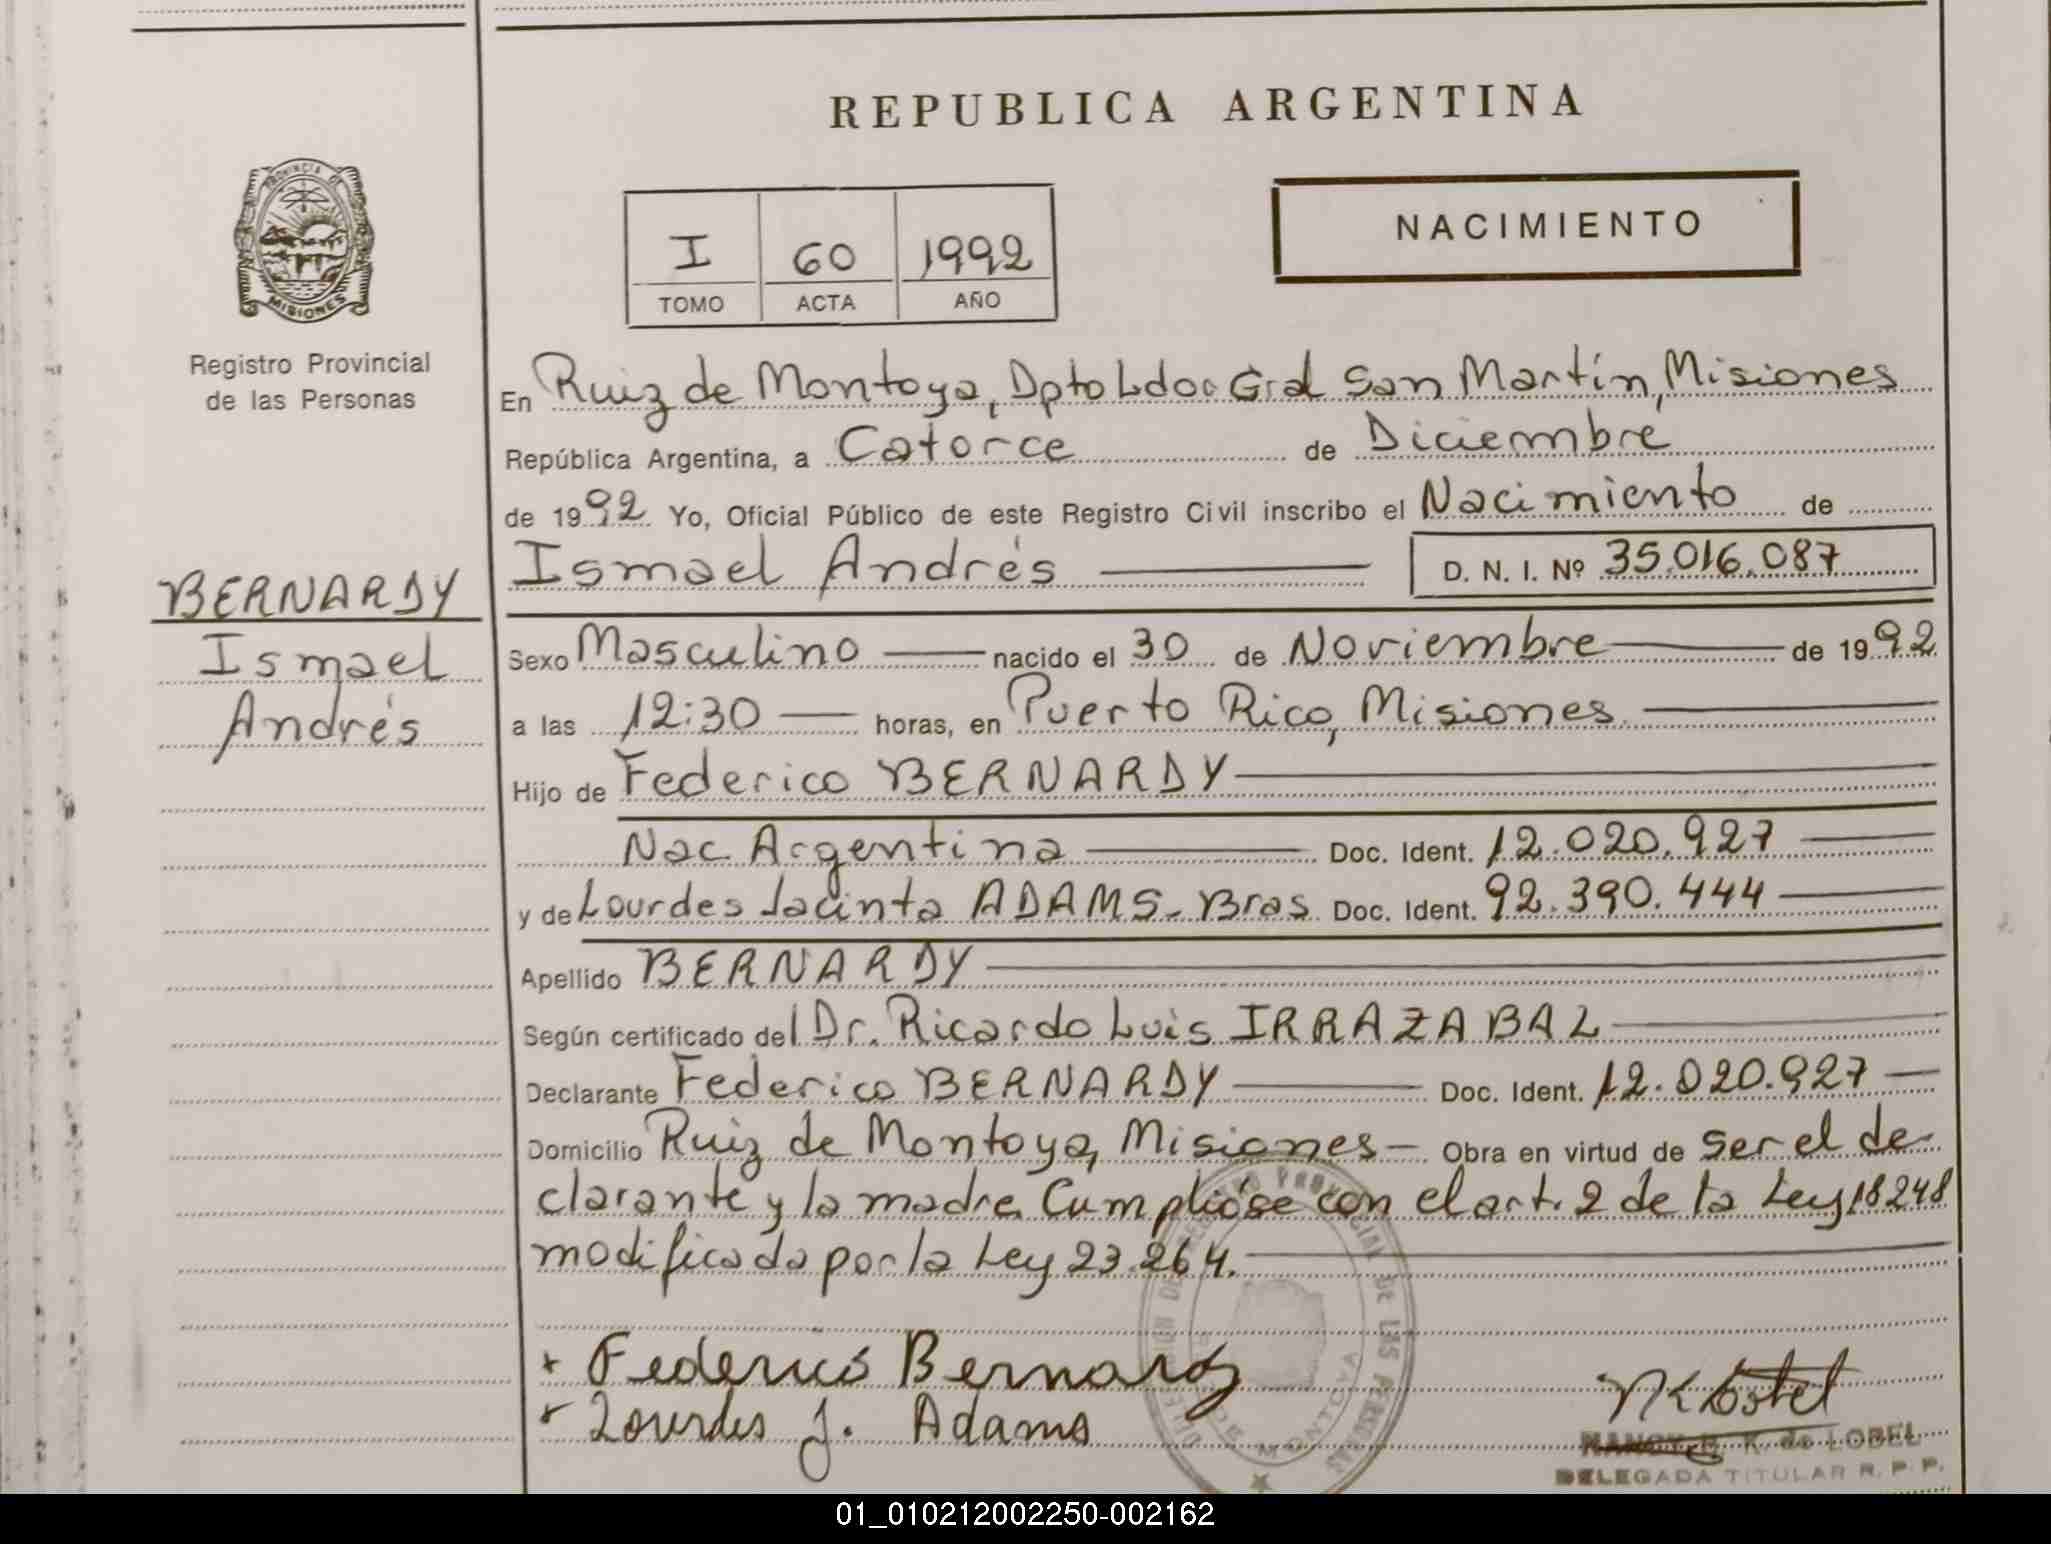 REPUBLICA ARGENTINA
PROVINCIA DE
MISIONES
Registro Provincial
de las Personas
I 60 1992
TOMO ACTA AÑO
NACIMIENTO
En Ruiz de Montoya, Dpto Ldor Gral San Martín, Misiones
República Argentina, a Catorce de Diciembre
de 1992 Yo, Oficial Público de este Registro Civil inscribo el Nacimiento de
Ismael Andrés D. N. I. Nº 35.016.087
BERNARDY
Ismael
Andrés
Sexo Masculino nacido el 30 de Noviembre de 1992
a las 12:30 horas, en Puerto Rico, Misiones
Hijo de Federico BERNARDY
Nac Argentina Doc. Ident. 12.020.927
y de Lourdes Jacinta ADAMS - Bras Doc. Ident. 92.390.444
Apellido BERNARDY
Según certificado del Dr. Ricardo Luis IRRAZABAL
Declarante Federico BERNARDY Doc. Ident. 12.020.927
Domicilio Ruiz de Montoya, Misiones - Obra en virtud de ser el de-
clarante y la madre. Cumplióse con el art. 2 de la Ley 18248
modificada por la Ley 23.264.
+ Federico Bernardy
+ Lourdes J. Adams
NANCY B. K. de LOBEL
DELEGADA TITULAR R. P. P.
01_010212002250-002162